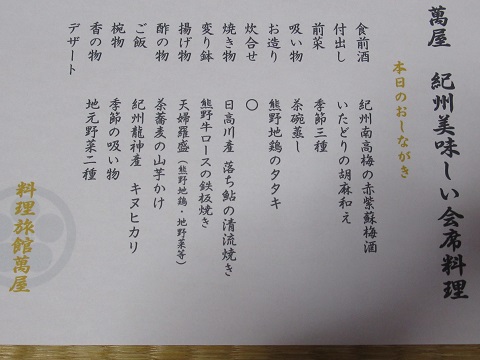 萬屋 紀州美味しい会席料理
本日のおしながき
食前酒 紀州南高梅の赤紫蘇梅酒
付出し いたどりの胡麻和え
前菜 季節三種
吸い物 茶碗蒸し
お造り 熊野地鶏のタタキ
炊合せ 〇
焼き物 日高川産 落ち鮎の清流焼き
変り鉢 熊野牛ロースの鉄板焼き
揚げ物 天婦羅盛(熊野地鶏・地野菜等)
酢の物 茶蕎麦の山芋かけ
ご飯 紀州龍神産 キヌヒカリ
椀物 季節の吸い物
香の物 地元野菜二種
デザート
料理旅館萬屋